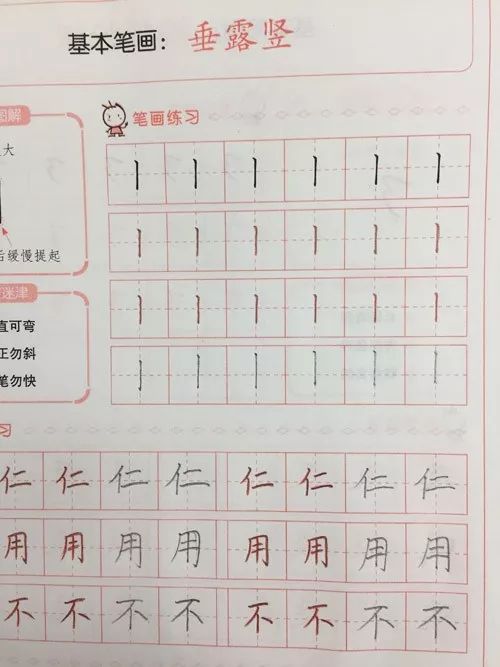 基本笔画：垂露竖
图解
大
后缓慢提起
迷津
直可弯
正勿斜
笔勿快
笔画练习
丨 丨 丨 丨 丨 丨
丨 丨 丨 丨 丨 丨
丨 丨 丨 丨 丨 丨
丨 丨 丨 丨 丨 丨
习
仁 仁 仁 仁 仁 仁 仁 仁
用 用 用 用 用 用 用 用
不 不 不 不 不 不 不 不